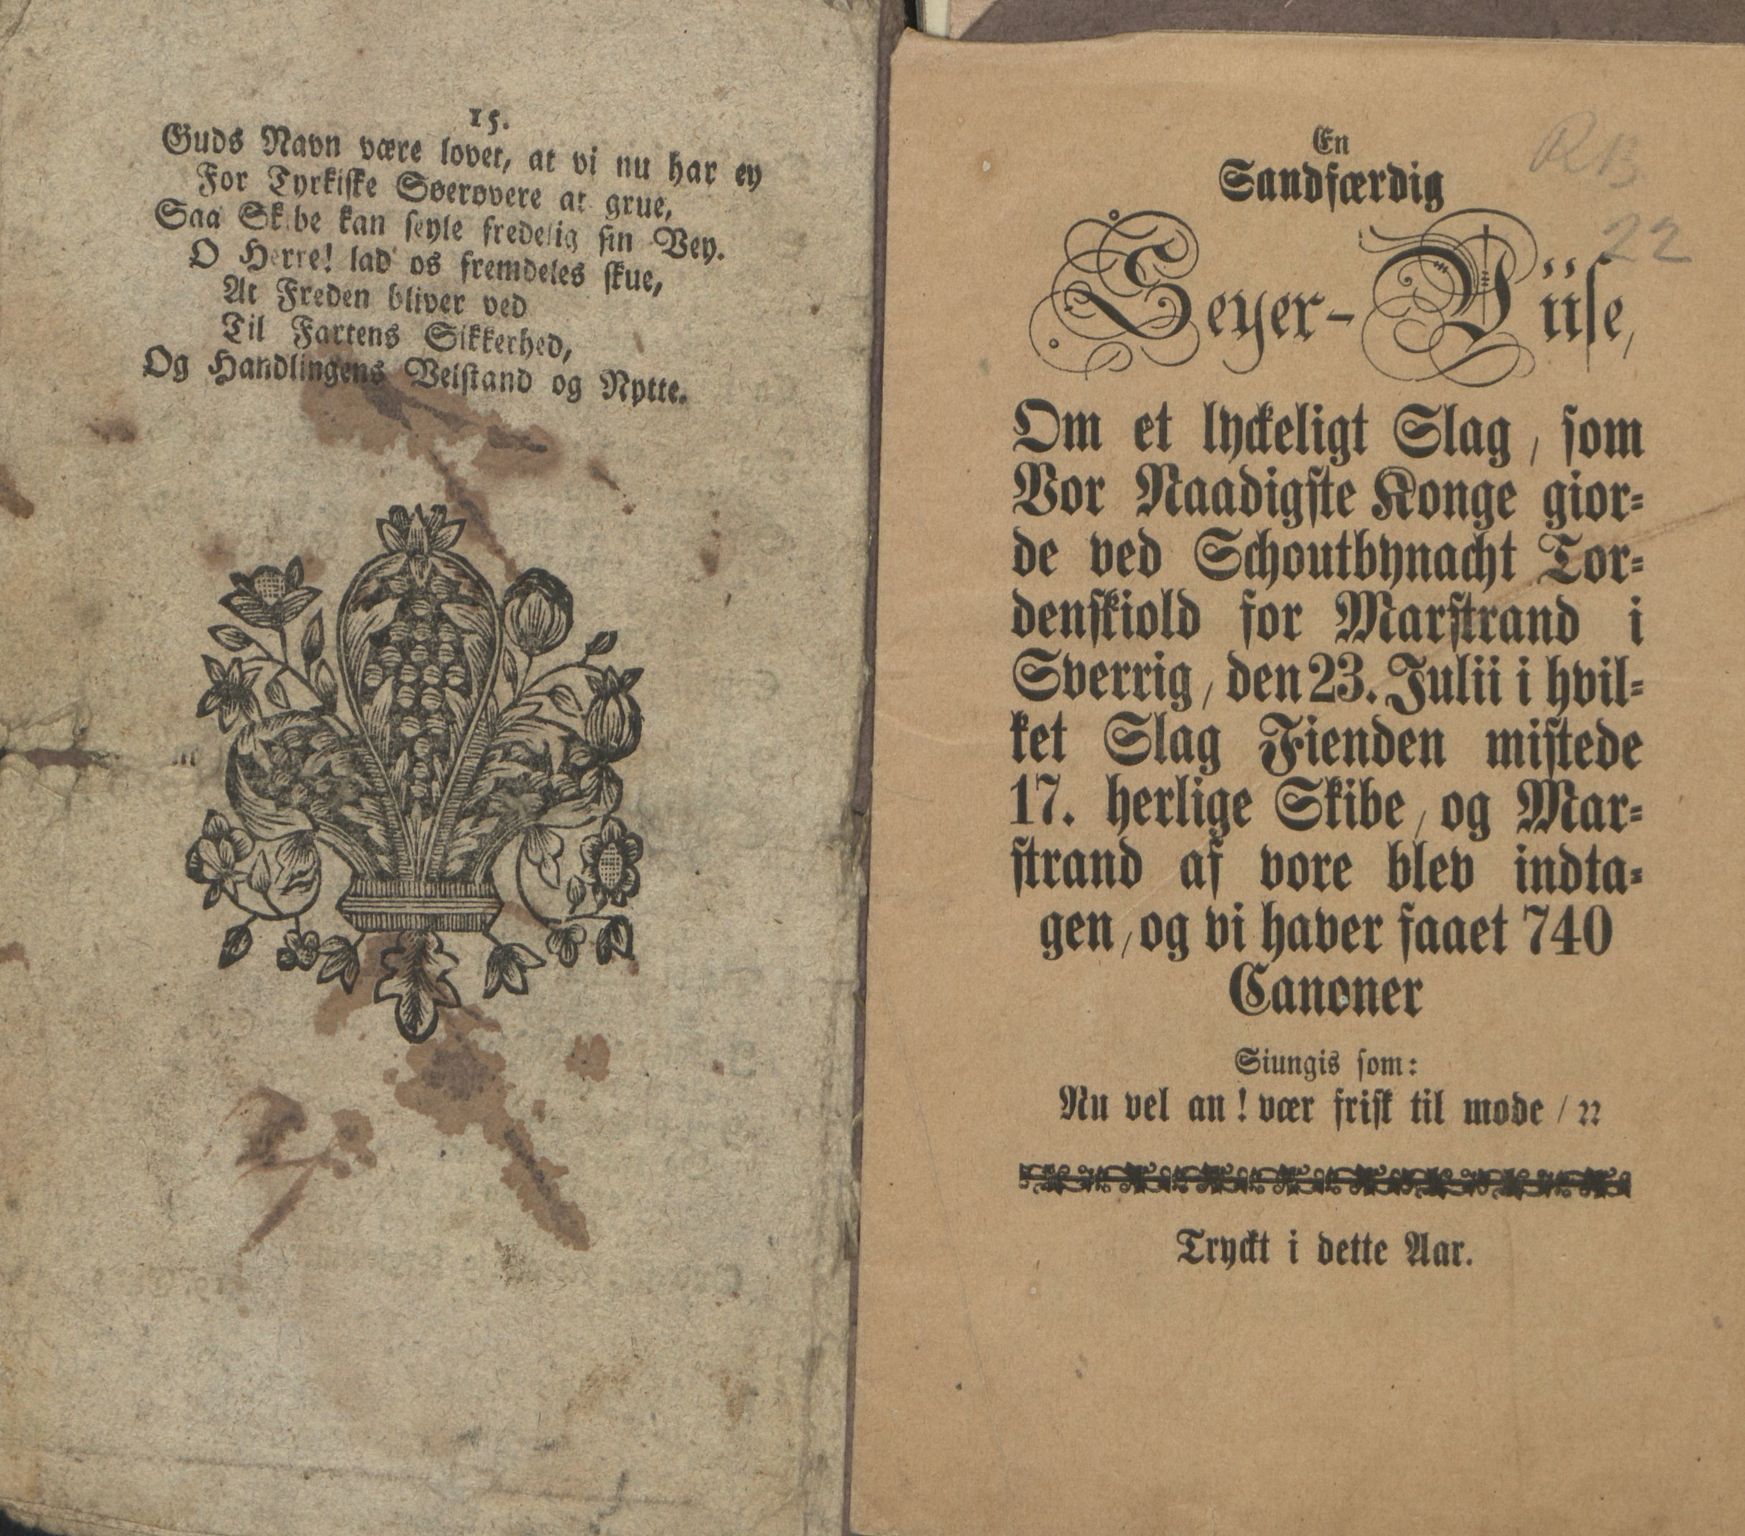 15.
Guds Navn være lovet, at vi nu har ey
For Tyrkiske Søerøvere at grue,
Saa Skibe kan seyle fredelig sin Vey.
O Herre! lad os fremdeles skue,
At Freden bliver ved
Til Fartens Sikkerhed,
Og Handlingens Velstand og Nytte.
En
Sandfærdig
Seyer-Viise,
Om et lyckeligt Slag, som
Vor Naadigste Konge gior-
de ved Schoutbynacht Tor-
denskiold for Marstrand i
Sverrig, den 23. Julii i hvil-
ket Slag Fienden mistede
17. herlige Skibe, og Mar-
strand af vore blev indta-
gen, og vi haver faaet 740
Canoner
Siungis som:
Nu vel an! vær frisk til mode / ꝛꝛ
Tryckt i dette Aar.
RB
22